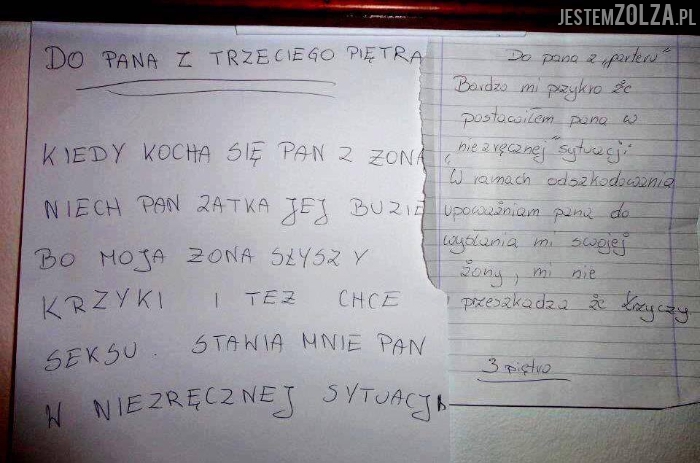 JESTEMZOLZA.PL
DO PANA Z TRZECIEGO PIĘTRA
KIEDY KOCHA SIĘ PAN Z ŻONĄ
NIECH PAN ZATKA JEJ BUZIE
BO MOJA ŻONA SŁYSZY
KRZYKI I TEŻ CHCE
SEKSU. STAWIA MNIE PAN
W NIEZRĘCZNEJ SYTUACJI
Do pana z "parteru"
Bardzo mi przykro że
postawiłem pana w
"niezręcznej" sytuacji.
W ramach odszkodowania
upoważniam pana do
wysłania mi swojej
żony, mi nie
przeszkadza że krzyczy
3 piętro